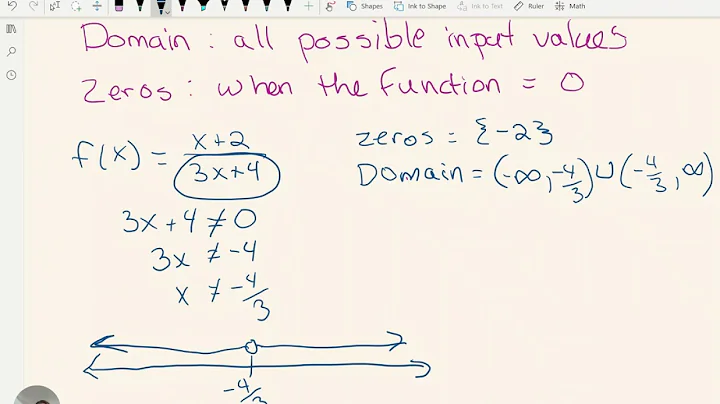 Shapes Ink to Shape Ink to Text Ruler Math
Domain : all possible input values
Zeros : when the function = 0
f(x) = x+2 / 3x+4
zeros = {-2}
Domain = (-∞, -4/3) ∪ (-4/3, ∞)
3x + 4 ≠ 0
3x ≠ -4
x ≠ -4/3
-4/3